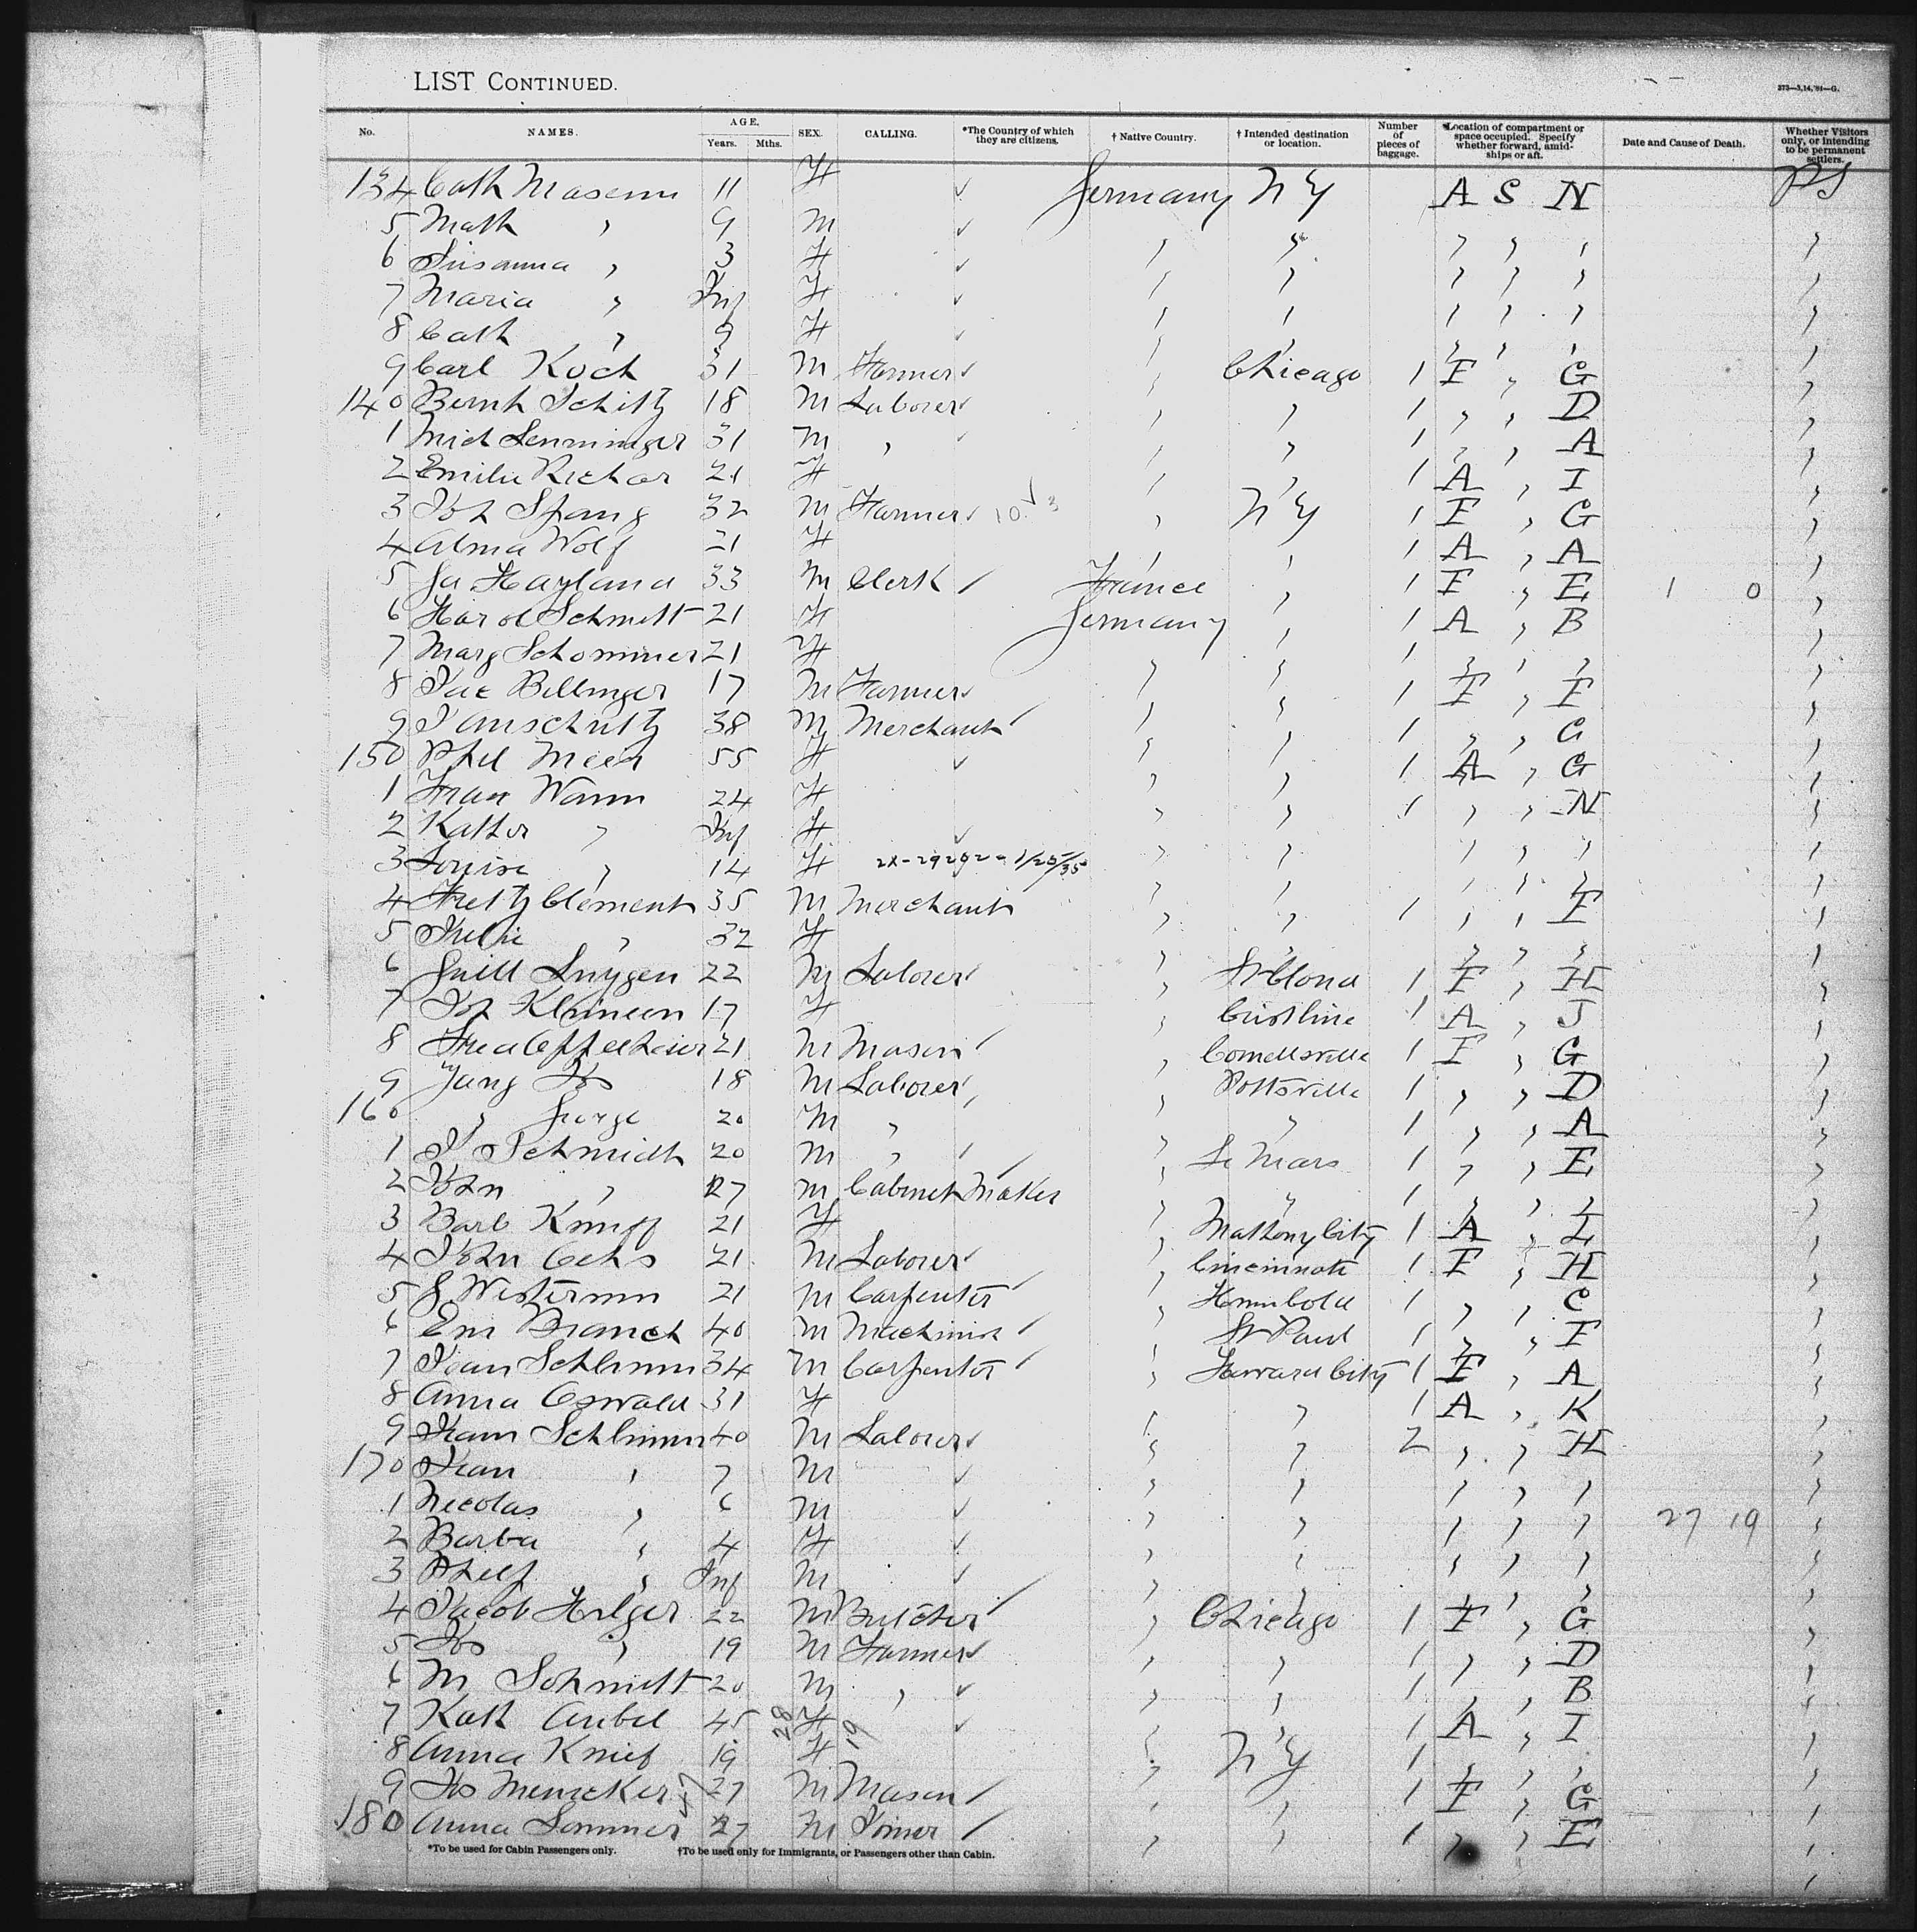 LIST CONTINUED.
373—3,14,'91—G.
No. NAMES. AGE. Years. Mths. SEX. CALLING. *The Country of which they are citizens. † Native Country. † Intended destination or location. Number of pieces of baggage. *Location of compartment or space occupied. Specify whether forward, amidships or aft. Date and Cause of Death. Whether Visitors only, or intending to be permanent settlers.
134 Cath 11 F ✓ Germany NY A S N PS
5 Math " 9 M ✓ " " " " " "
6 Susanna " 3 F ✓ " " " " " "
7 Maria " Inf F ✓ " " " " " "
8 Cath " 9 F ✓ " " " " " "
9 Carl Koch 31 M Farmer ✓ " Chicago 1 F " G "
140 Bernh Schiltz 18 M Laborer ✓ " " 1 " " D "
1 Mich Lenninger 31 M " ✓ " " 1 " " A "
2 Emilie Richar 21 F " " 1 A " I "
3 Joh Spang 32 M Farmer ✓ " NY 1 F " G "
4 Alma Wolf 21 F " " 1 A " A "
5 33 M Clerk / France " 1 F " E 1 0 "
6 Schmitt 21 F Germany " 1 A " B "
7 Marg Schommer 21 F " " 1 " " " "
8 Jac Bellinger 17 M Farmer ✓ " " 1 F " F "
9 38 M Merchant / " " 1 " " G "
150 Phil Meer 55 F ✓ " " 1 A " G "
1 24 F " " 1 " " N "
2 " Inf F ✓ " " " " " "
3 Louise " 14 F 2X-29292-1/25/35 " " " " " "
4 Clement 35 M Merchant " " 1 " " F "
5 " 32 F " " " " " "
6 22 M Laborer ✓ " 1 F " H "
7 Joh 17 F " 1 A " J "
8 21 M Mason / " 1 F " G "
9 Jang Jos 18 M Laborer ✓ " Pottsville 1 " " D "
160 " George 20 M " " " 1 " " A "
1 J Schmidt 20 M " / " Le Mars 1 " " E "
2 John " 27 M Cabinet Maker " " 1 " " " "
3 Barb 21 F " 1 A " L "
4 John Ochs 21 M Laborer ✓ " Cincinnati 1 F " H "
5 21 M Carpenter / " Humbold 1 " " C "
6 Em Branch 40 M Machinist / " St Paul 1 " " F "
7 Jean 34 M Carpenter / " Howard City 1 F " A "
8 Anna Oswald 31 F " " 1 A " K "
9 40 M Laborer ✓ " " 2 " " H "
170 Jean " 7 M ✓ " " " " " "
1 Nicolas " 6 M ✓ " " " " " 27 19 "
2 Barba " 4 F ✓ " " " " " "
3 " Inf M ✓ " " " " " "
4 Jacob Hilger 22 M Butcher / " Chicago 1 F " G "
5 Jos " 19 M Farmer ✓ " " 1 " " D "
6 M Schmitt 20 M " ✓ " " 1 " " B "
7 Kath 45 F ✓ " " 1 A " I "
8 Anna Knief 19 F " NY 1 " " " "
9 Jos 27 M Mason / " " 1 F " G "
180 Anna Sommer 27 M Joiner / " " 1 " " E "
*To be used for Cabin Passengers only. †To be used only for Immigrants, or Passengers other than Cabin.